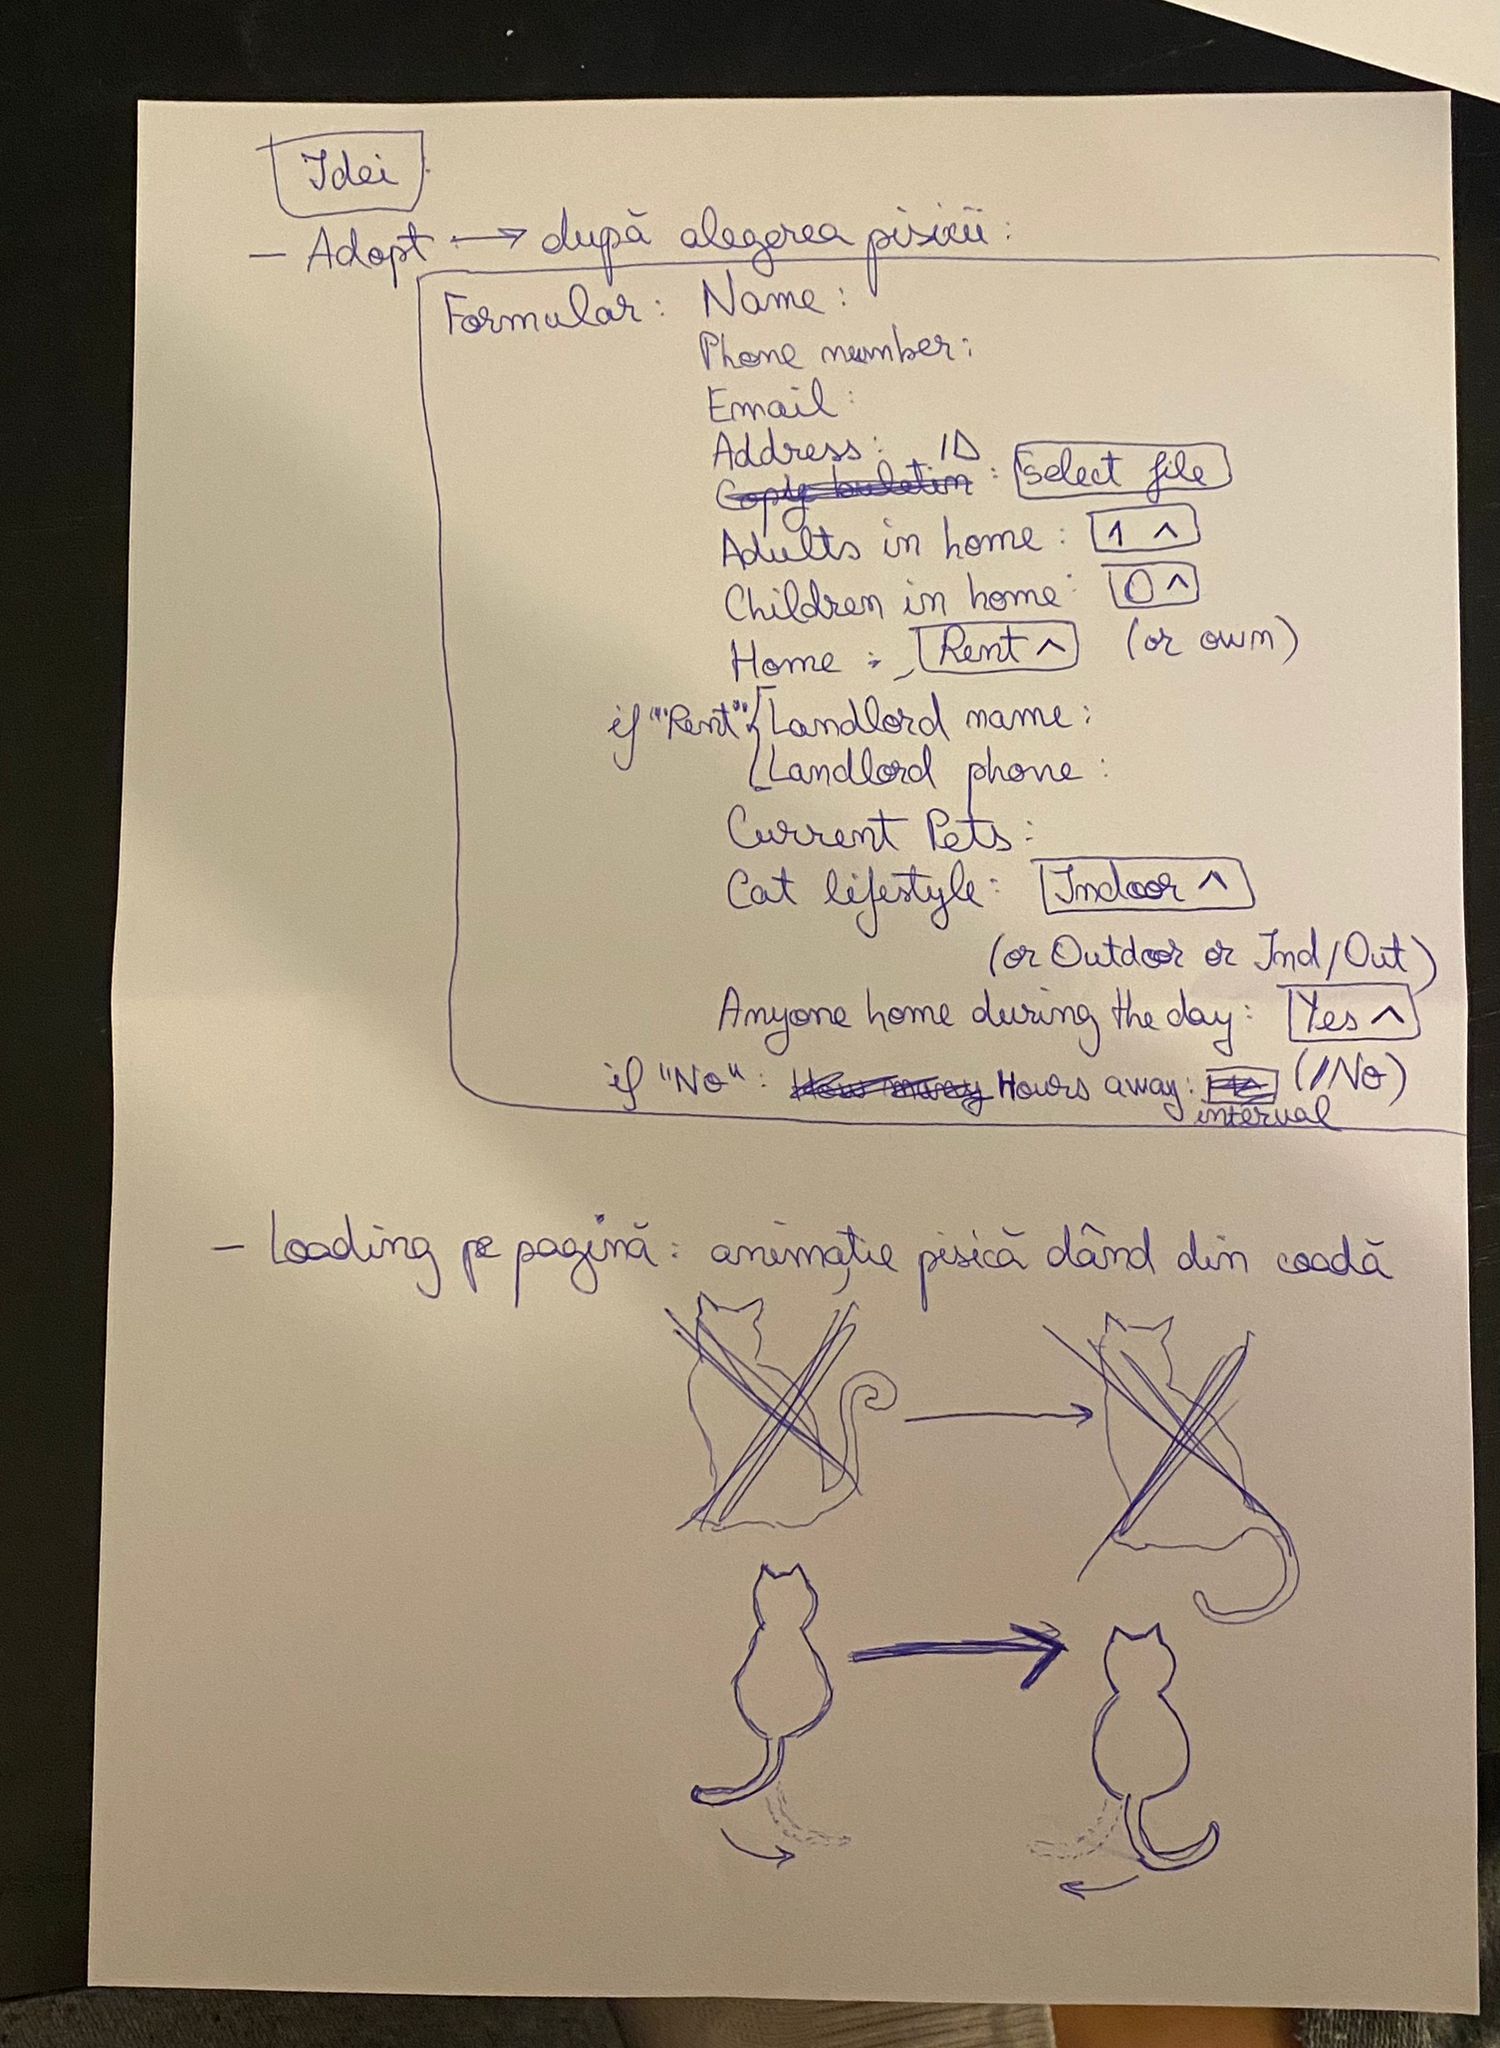 Idei
- Adopt → după alegerea pisicii:
Formular: Name:
Phone number:
Email:
Address:
Copy buletin ID : Select file
Adults in home: 1 ^
Children in home: 0 ^
Home: Rent ^ (or own)
if "Rent" { Landlord name:
Landlord phone:
Current Pets:
Cat lifestyle: Indoor ^
(or Outdoor or Ind/Out)
Anyone home during the day: Yes ^
(/No)
if "No": How many Hours away:
interval
- Loading pe pagină: animație pisică dând din coadă